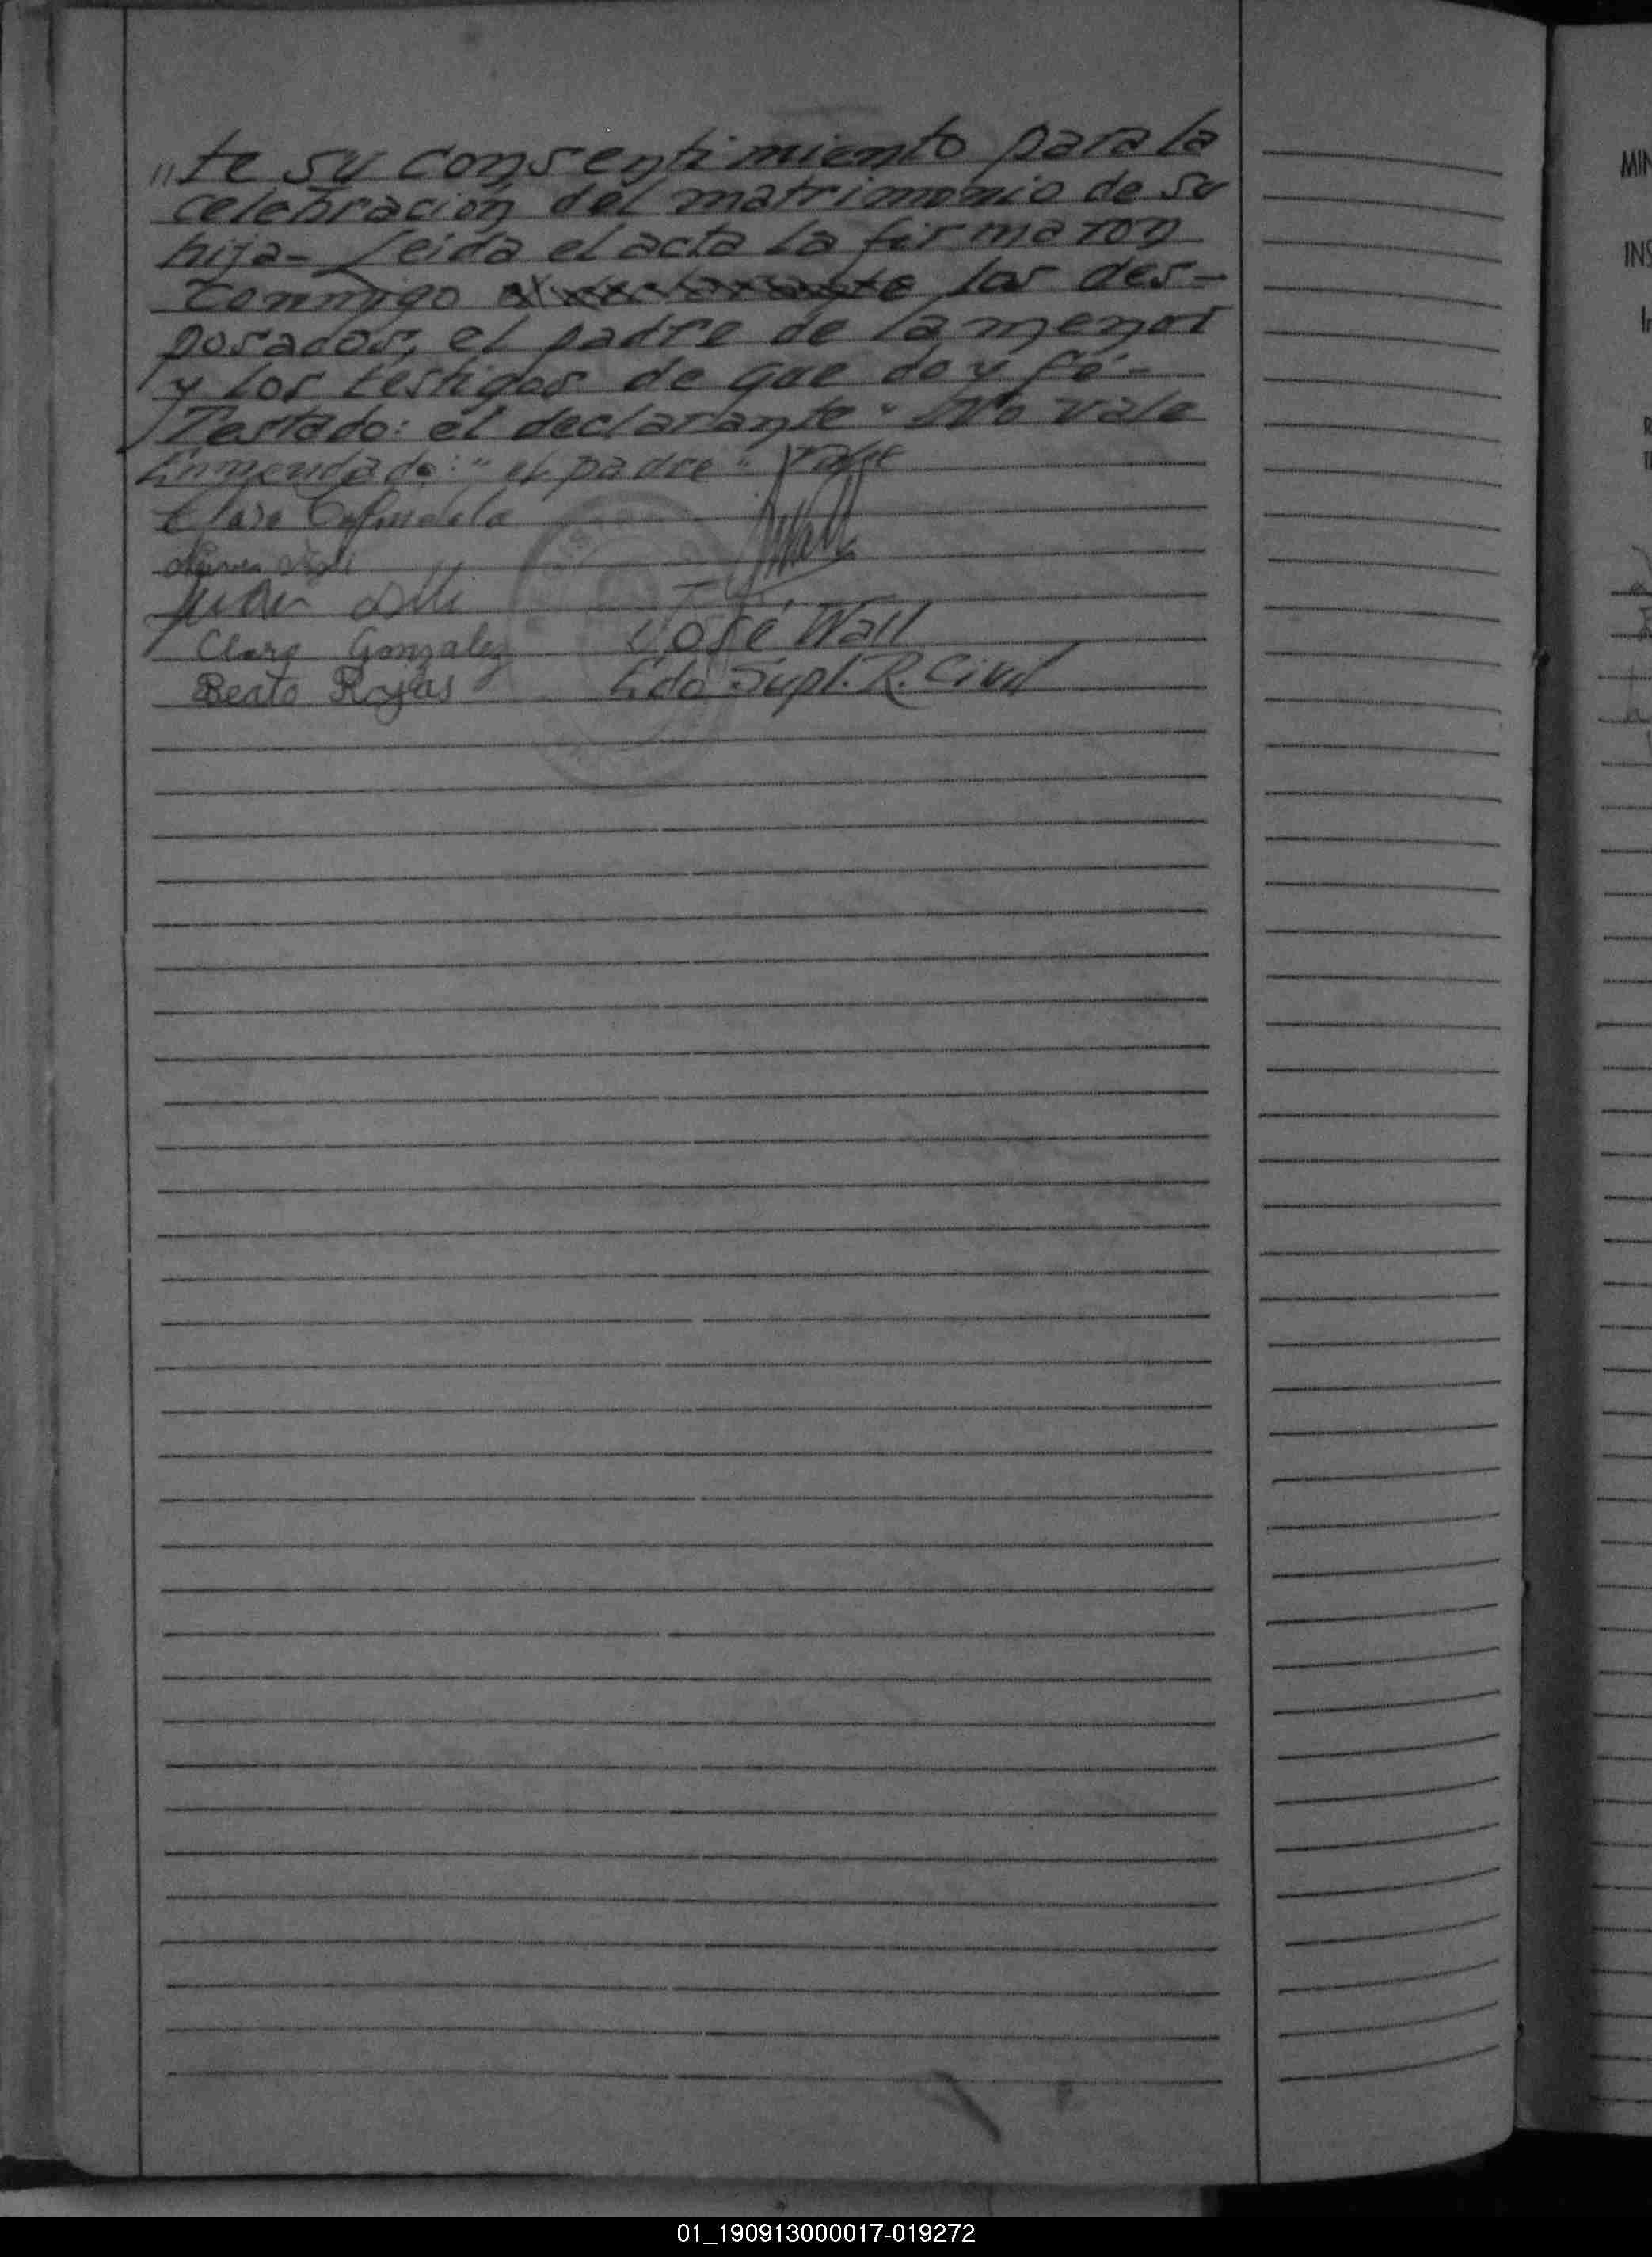 "te su consentimiento para la
celebración del matrimonio de su
hija- Leida el acta la firmaron
conmigo los des-
posados, el padre de la menor
y los testigos de que doy fé-
Testado: el declarante" No vale
Enmendado: "el padre" vale
Clara Gonzalez
José Wall
Beato Rojas
Edo Supl. R. Civil
MIN
INS
01_190913000017-019272